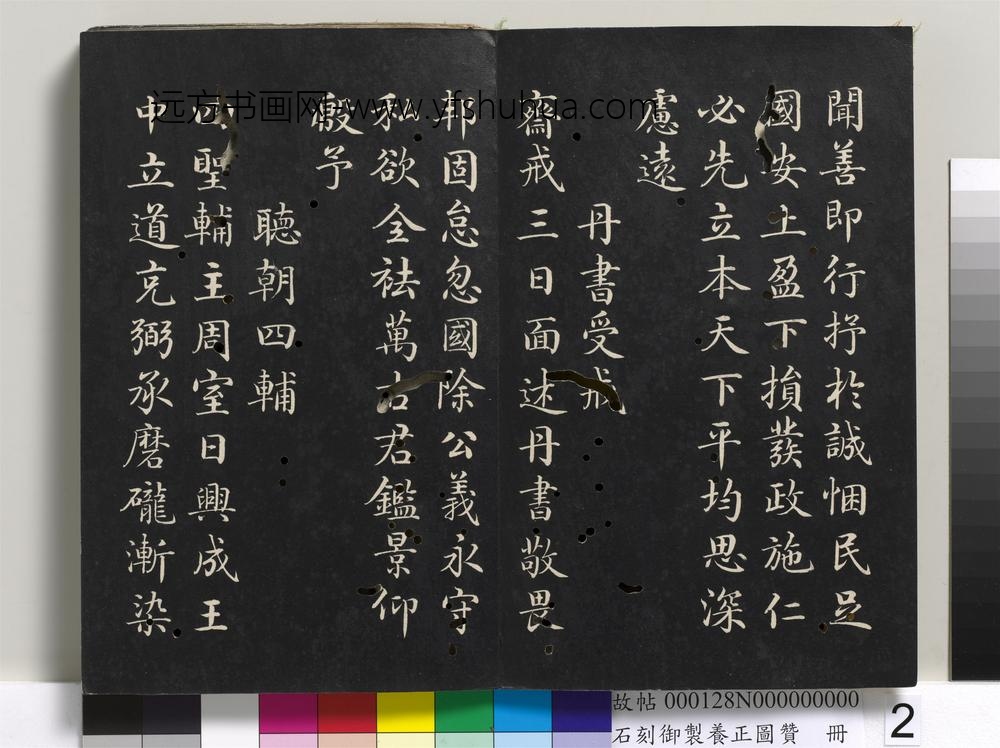 聞善即行抒於誠悃民足
國安土盈下損發政施仁
必先立本天下平均思深
慮遠
丹書受戒
齋戒三日面述丹書敬畏
邦固怠忽國除公義永守
私欲全祛萬古君鑑景仰
殷予
聽朝四輔
聖輔主周室日興成王
中立道充弼承磨礲漸染
远方书画网-www.yfshuhua.com
故帖 000128N000000000
石刻御製養正圖贊 冊
2